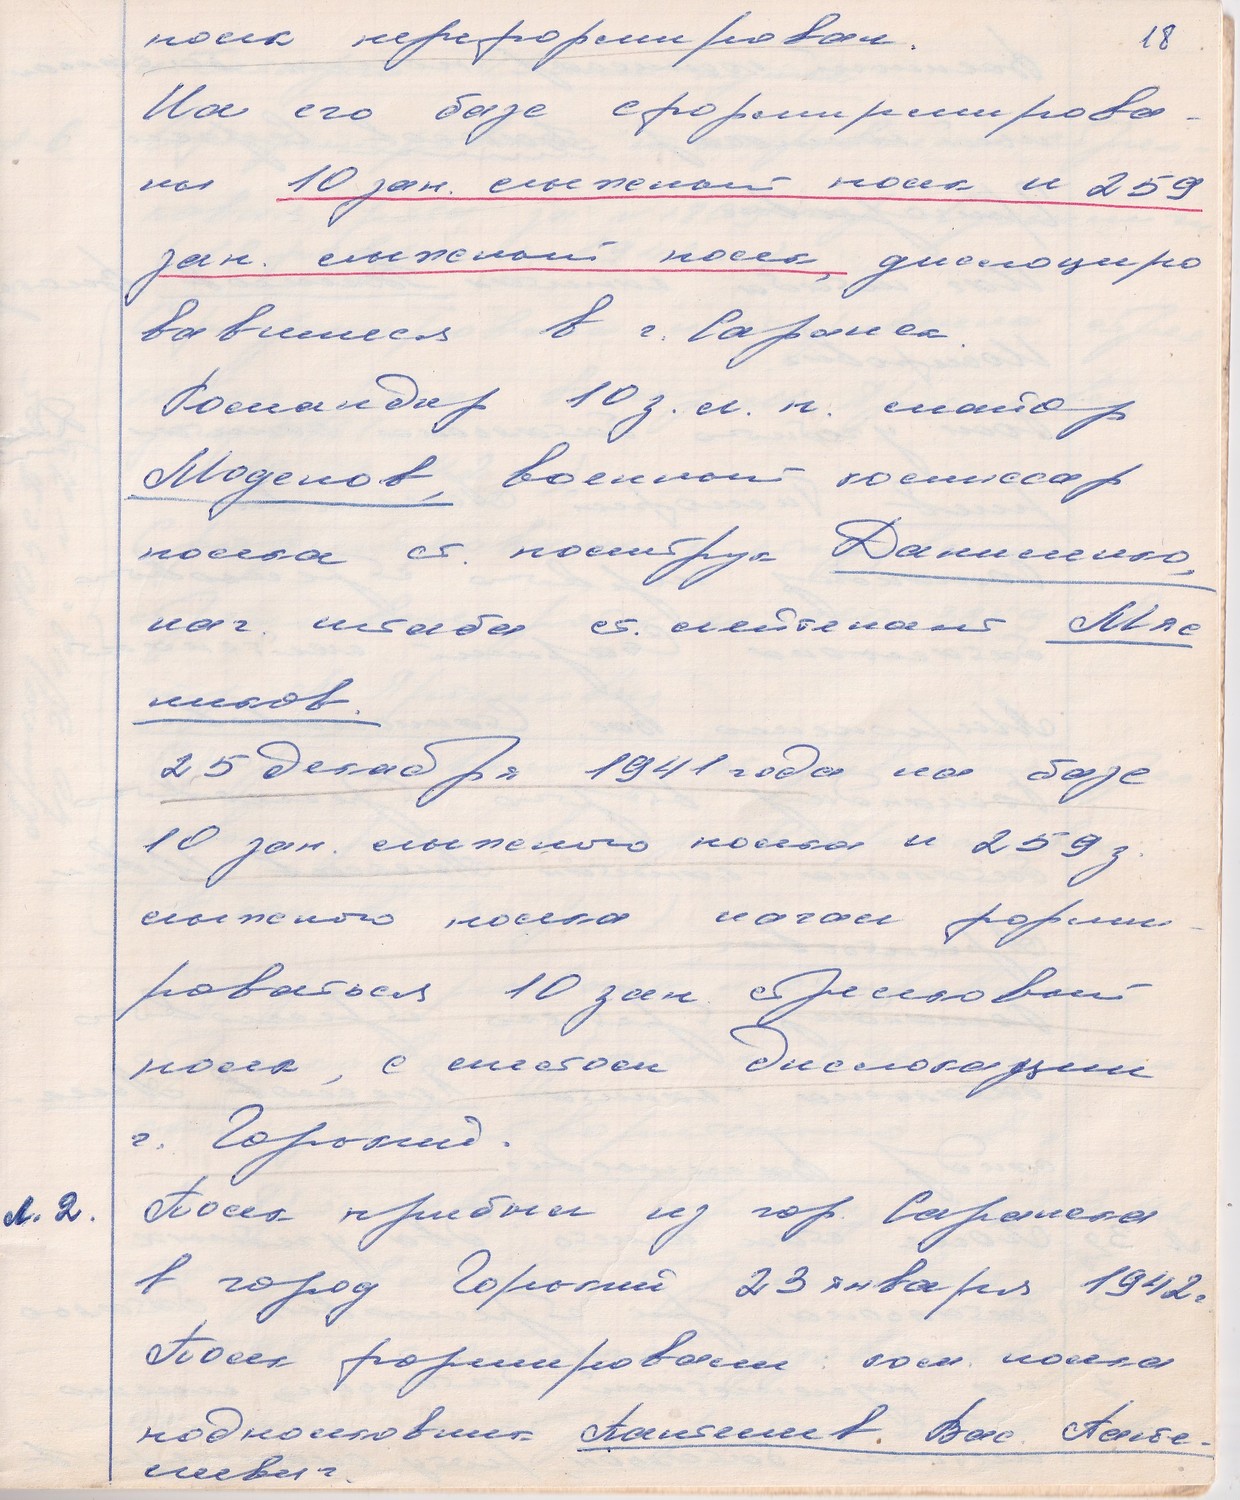 полк переформирован.
18
На его базе сформирмирова-
ны 10 зап. лыжный полк и 259
зап. лыжный полк, дислоциро
вавшиеся в г. Саранск.
Командир 10 з. л. п. майор
Моденов, военный комиссар
полка ст. политрук Даниленко,
нач. штаба ст. лейтенант Мяс
ников.
25 декабря 1941 года на базе
10 зап. лыжного полка и 259 з.
лыжного полка начал форми-
роваться 10 зап. стрелковый
полк, с местом дислокации
г. Горький.
Л. 2.
Полк прибыл из гор. Саранска
в город Горький 23 января 1942г
Полк формировали: ком. полка
подполковник Вас.